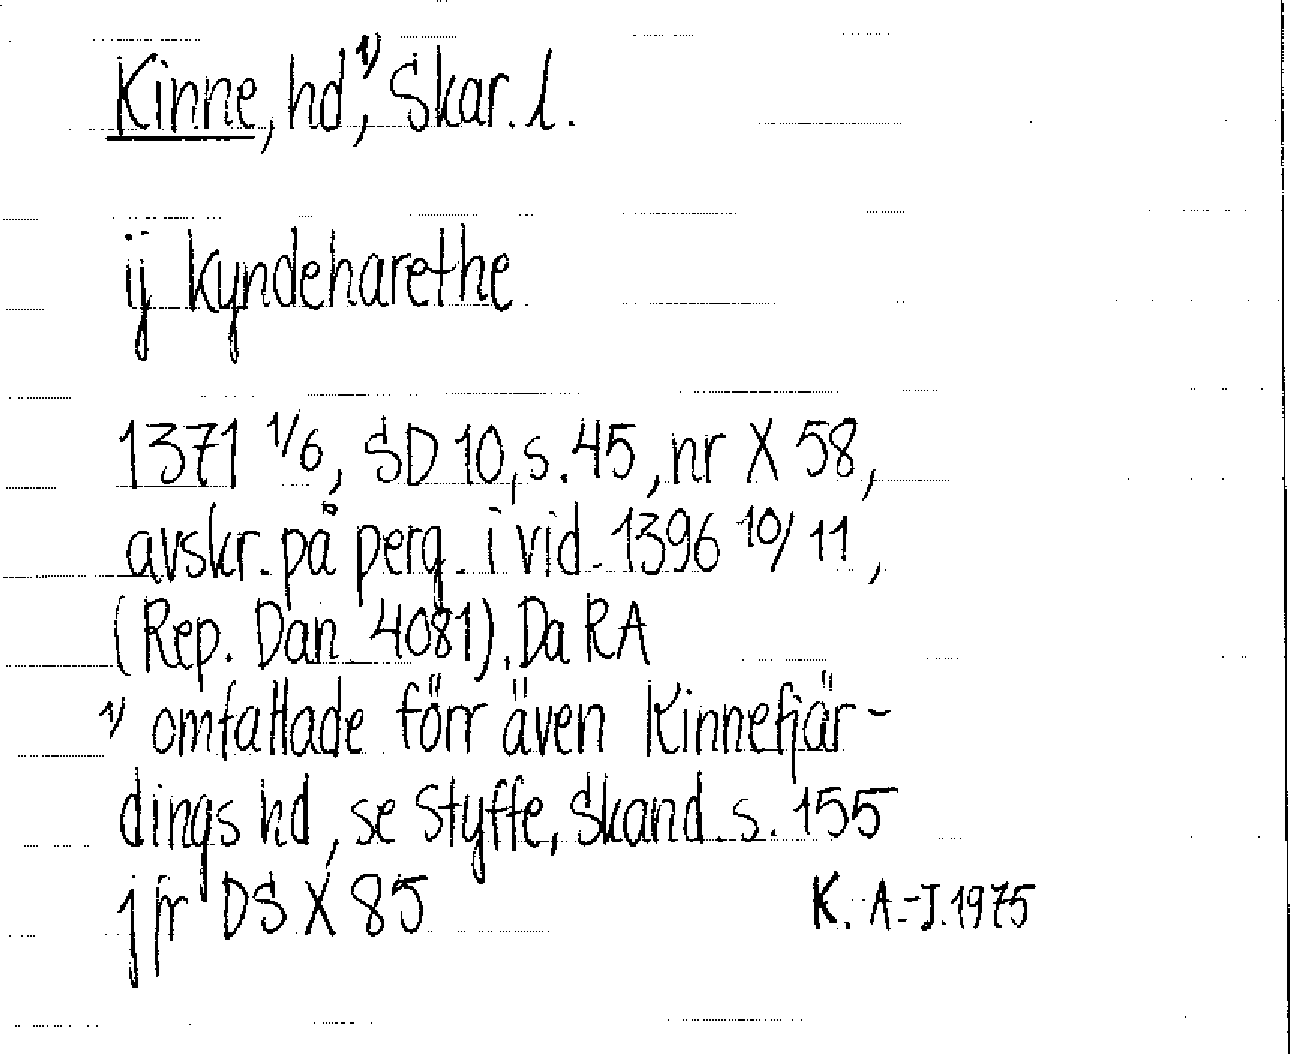 Kinne, hd¹⁾, Skar. l.
ij kyndeharethe
1371 1/6, SD 10, s. 45, nr X 58,
avskr. på perg. i vid. 1396 10/11,
(Rep. Dan 4081). Da RA
¹⁾ omfattade förr även Kinnefjär-
dings hd, se Styffe, Skand s. 155
jfr DS X 85
K. A.-J. 1975